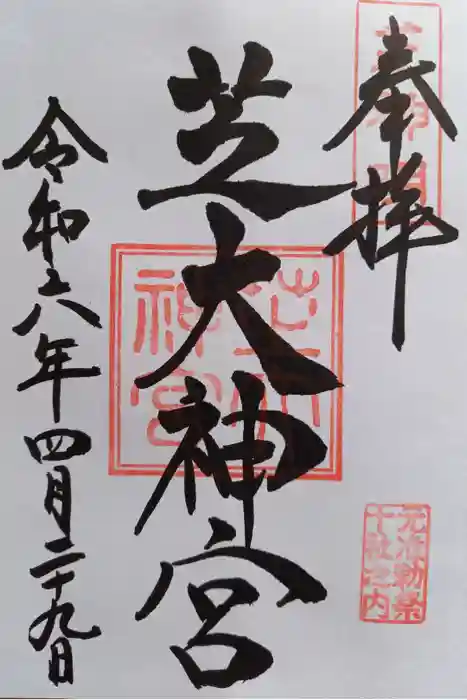 奉拝
芝大神宮
令和六年四月二十九日
芝大神宮
元准勅祭
十社之内